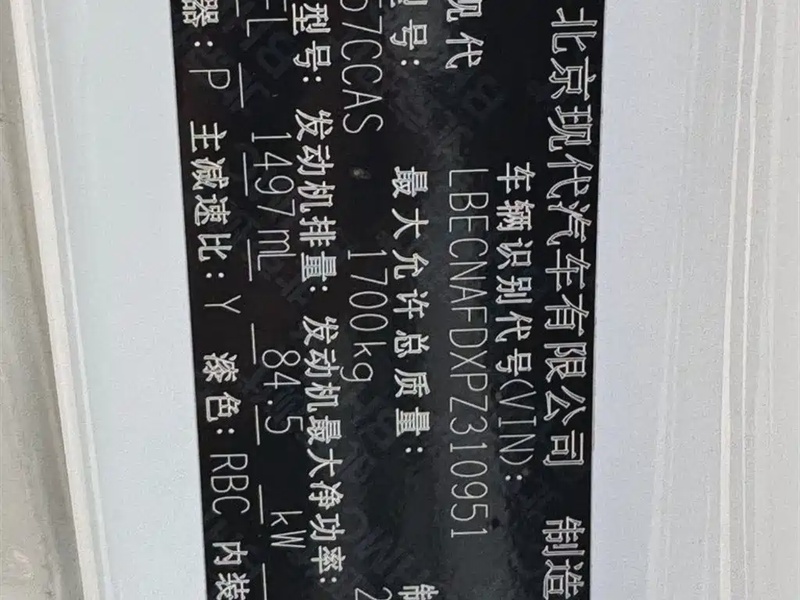 北京现代汽车有限公司 制造
车辆识别代号(VIN):
LBECNAFDXPZ310951
现代
型号: 最大允许总质量: 制
57CCAS 1700kg 2
型号: 发动机排量: 发动机最大净功率:
FL 1497mL 84.5 kW
器: P 主减速比: Y 漆色: RBC 内装